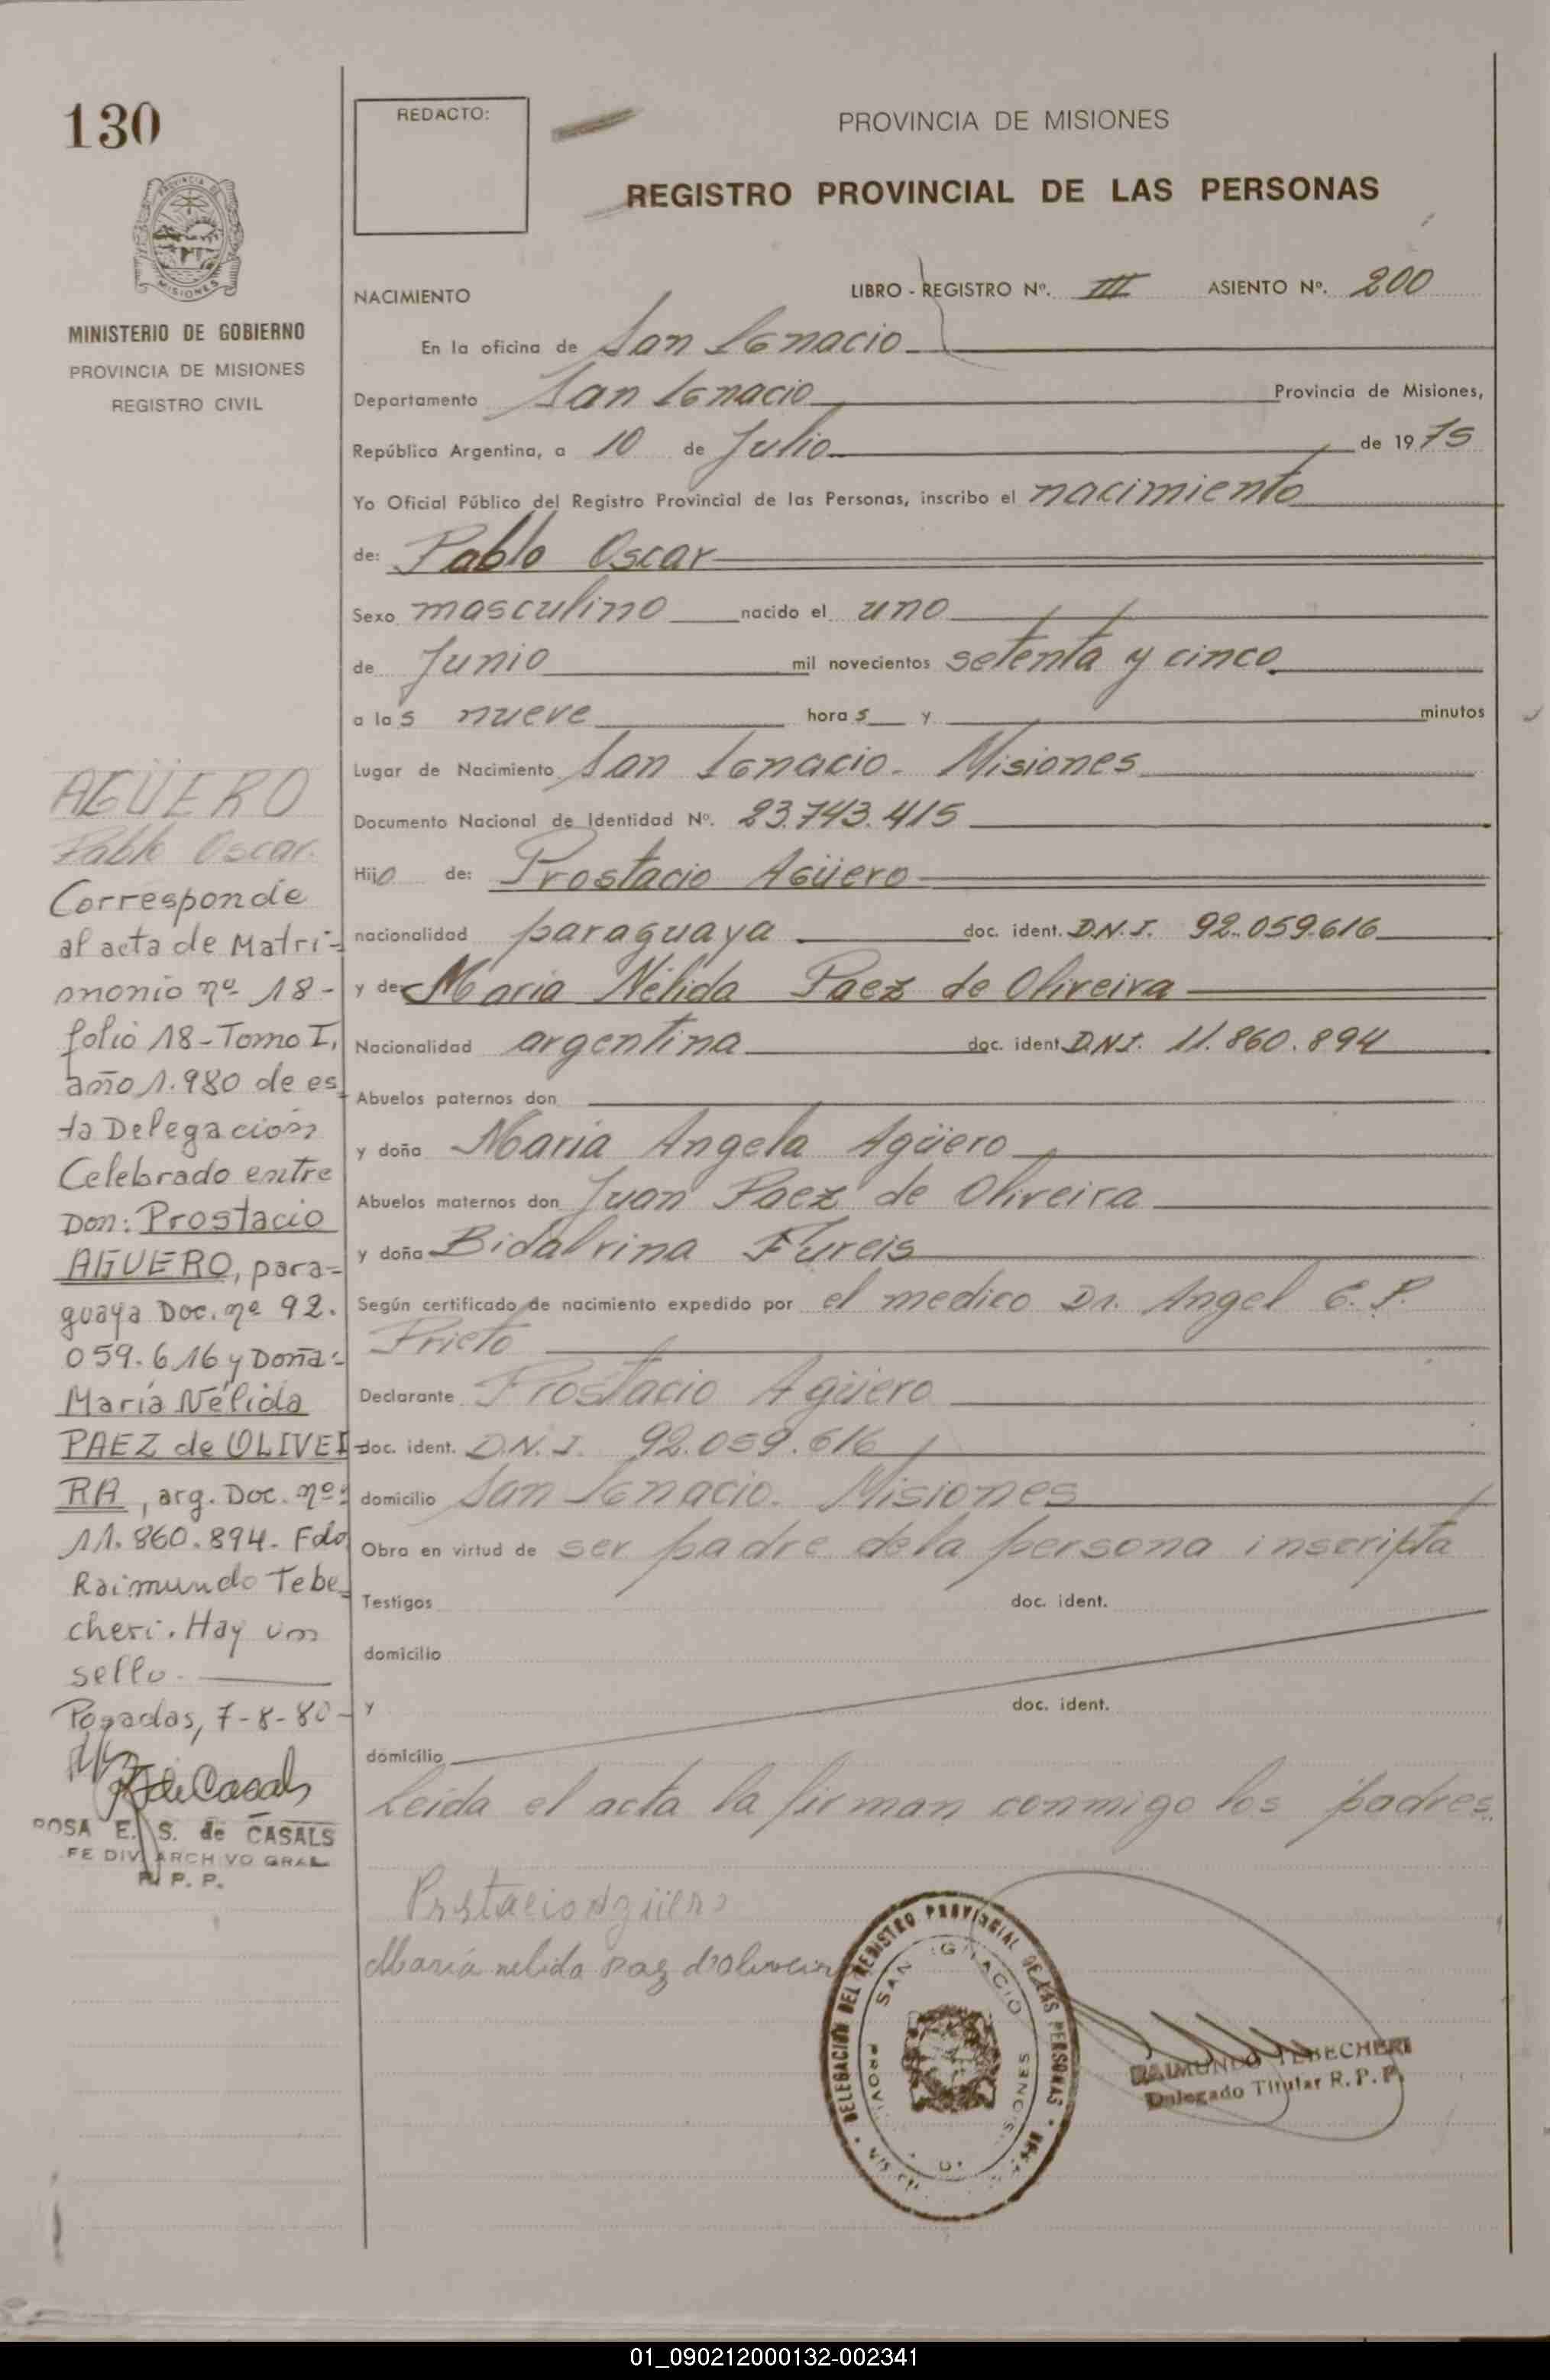 130
REDACTO:
PROVINCIA DE MISIONES
REGISTRO PROVINCIAL DE LAS PERSONAS
MINISTERIO DE GOBIERNO
PROVINCIA DE MISIONES
REGISTRO CIVIL
NACIMIENTO
LIBRO - REGISTRO Nº. III ASIENTO Nº. 200
En la oficina de San Ignacio
Departamento San Ignacio Provincia de Misiones,
República Argentina, a 10 de Julio de 1975
Yo Oficial Público del Registro Provincial de las Personas, inscribo el nacimiento
de: Pablo Oscar
Sexo masculino nacido el uno
de Junio mil novecientos setenta y cinco
a las nueve horas y minutos
Lugar de Nacimiento San Ignacio. Misiones
Documento Nacional de Identidad Nº. 23.743.415
Hijo de: Prostacio Agüero
nacionalidad paraguaya doc. ident. D.N.I. 92.059.616
y de Maria Nélida Paez de Oliveira
Nacionalidad argentina doc. ident. D.N.I. 11.860.894
Abuelos paternos don
y doña Maria Angela Agüero
Abuelos maternos don Juan Paez de Oliveira
y doña Bidalvina Fureis
Según certificado de nacimiento expedido por el medico Dr. Angel E. P.
Prieto
Declarante Prostacio Agüero
doc. ident. D.N.I. 92.059.616
domicilio San Ignacio. Misiones
Obra en virtud de ser padre de la persona inscripta
Testigos doc. ident.
domicilio
y doc. ident.
domicilio
Leida el acta la firman conmigo los padres.
AGÜERO
Pablo Oscar.
Corresponde
al acta de Matri-
monio nº 18-
folio 18-Tomo I,
año 1.980 de es
ta Delegación
Celebrado entre
Don: Prostacio
AGUERO, para=
guaya Doc. nº 92.
059.616 y Doña:
María Nélida
PAEZ de OLIVEI
RA, arg. Doc. nº:
11.860.894. Fdo
Raimundo Tebe
cheri. Hay un
sello.
Posadas, 7-8-80
R de Casals
ROSA E. S. de CASALS
FE DIV. ARCHIVO GRAL
R. P. P.
Prstacio Agüero
María nelida Paez d'Oliveira
DELEGACION DEL REGISTRO PROVINCIAL DE LAS PERSONAS
SAN IGNACIO
RAIMUNDO TEBECHERI
Delegado Titular R. P. P.
01_090212000132-002341